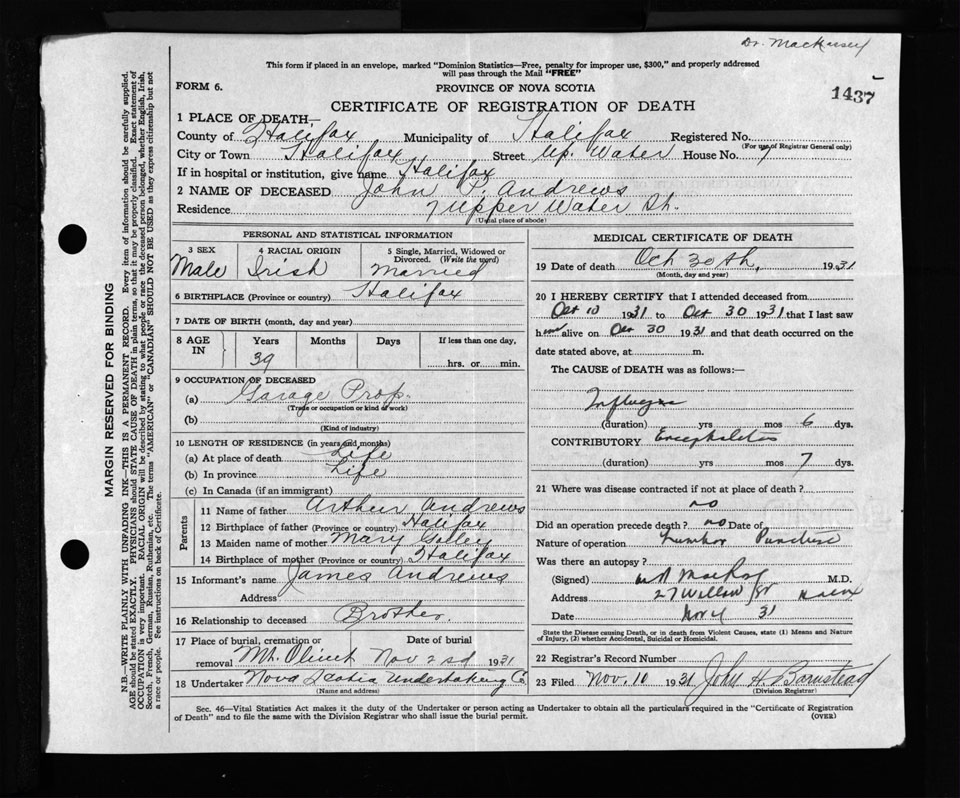 Dr. MacKasey
This form if placed in an envelope, marked "Dominion Statistics—Free, penalty for improper use, $300," and properly addressed
will pass through the Mail "FREE"
FORM 6.
PROVINCE OF NOVA SCOTIA
1437
CERTIFICATE OF REGISTRATION OF DEATH
1 PLACE OF DEATH—
County of Halifax Municipality of Halifax Registered No.
(For use of Registrar General only)
City or Town Halifax Street Up. Water House No. 7
If in hospital or institution, give name Halifax
2 NAME OF DECEASED John P. Andrews
Residence 7 Upper Water St.
(Usual place of abode)
PERSONAL AND STATISTICAL INFORMATION
3 SEX 4 RACIAL ORIGIN 5 Single, Married, Widowed or
Divorced. (Write the word)
Male Irish Married
6 BIRTHPLACE (Province or country) Halifax
7 DATE OF BIRTH (month, day and year)
8 AGE IN Years Months Days If less than one day,
39 hrs. or min.
9 OCCUPATION OF DECEASED
(a) Garage Prop.
(Trade or occupation or kind of work)
(b)
(Kind of industry)
10 LENGTH OF RESIDENCE (in years and months)
(a) At place of death Life
(b) In province Life
(c) In Canada (if an immigrant)
Parents
11 Name of father Arthur Andrews
12 Birthplace of father (Province or country) Halifax
13 Maiden name of mother Mary
14 Birthplace of mother (Province or country) Halifax
15 Informant's name James Andrews
Address
16 Relationship to deceased Brother
17 Place of burial, cremation or Date of burial
removal Mt. Olivet Nov 2nd 1931
18 Undertaker Nova Scotia Undertaking Co
(Name and address)
MEDICAL CERTIFICATE OF DEATH
19 Date of death Oct 30th, 1931
(Month, day and year)
20 I HEREBY CERTIFY that I attended deceased from
Oct 10 1931 to Oct 30 1931 that I last saw
him alive on Oct 30 1931 and that death occurred on the
date stated above, at m.
The CAUSE of DEATH was as follows:—
Influenza
(duration) yrs mos 6 dys.
CONTRIBUTORY Encephalitis
(duration) yrs mos 7 dys.
21 Where was disease contracted if not at place of death?
no
Did an operation precede death? no Date of
Nature of operation Lumbar Puncture
Was there an autopsy?
(Signed) M.D.
Address 27 Willow St
Date Nov 4 31
State the Disease causing Death, or in death from Violent Causes, state (1) Means and Nature
of Injury, (2) whether Accidental, Suicidal or Homicidal.
22 Registrar's Record Number
23 Filed Nov. 10 1931 John H. Barnstead
(Division Registrar)
Sec. 46—Vital Statistics Act makes it the duty of the Undertaker or person acting as Undertaker to obtain all the particulars required in the "Certificate of Registration
of Death" and to file the same with the Division Registrar who shall issue the burial permit.
(OVER)
MARGIN RESERVED FOR BINDING
N.B.—WRITE PLAINLY WITH UNFADING INK—THIS IS A PERMANENT RECORD. Every item of information should be carefully supplied.
AGE should be stated EXACTLY. PHYSICIANS should STATE CAUSE OF DEATH in plain terms, so that it may be properly classified. Exact statement of
OCCUPATION is very important. RACIAL ORIGIN will be described by stating to what people or race the deceased person belonged, whether English, Irish,
Scotch, French, German, Russian, Ruthenian, etc. The terms "AMERICAN" or "CANADIAN" SHOULD NOT BE USED as they express citizenship but not
a race or people. See instructions on back of Certificate.